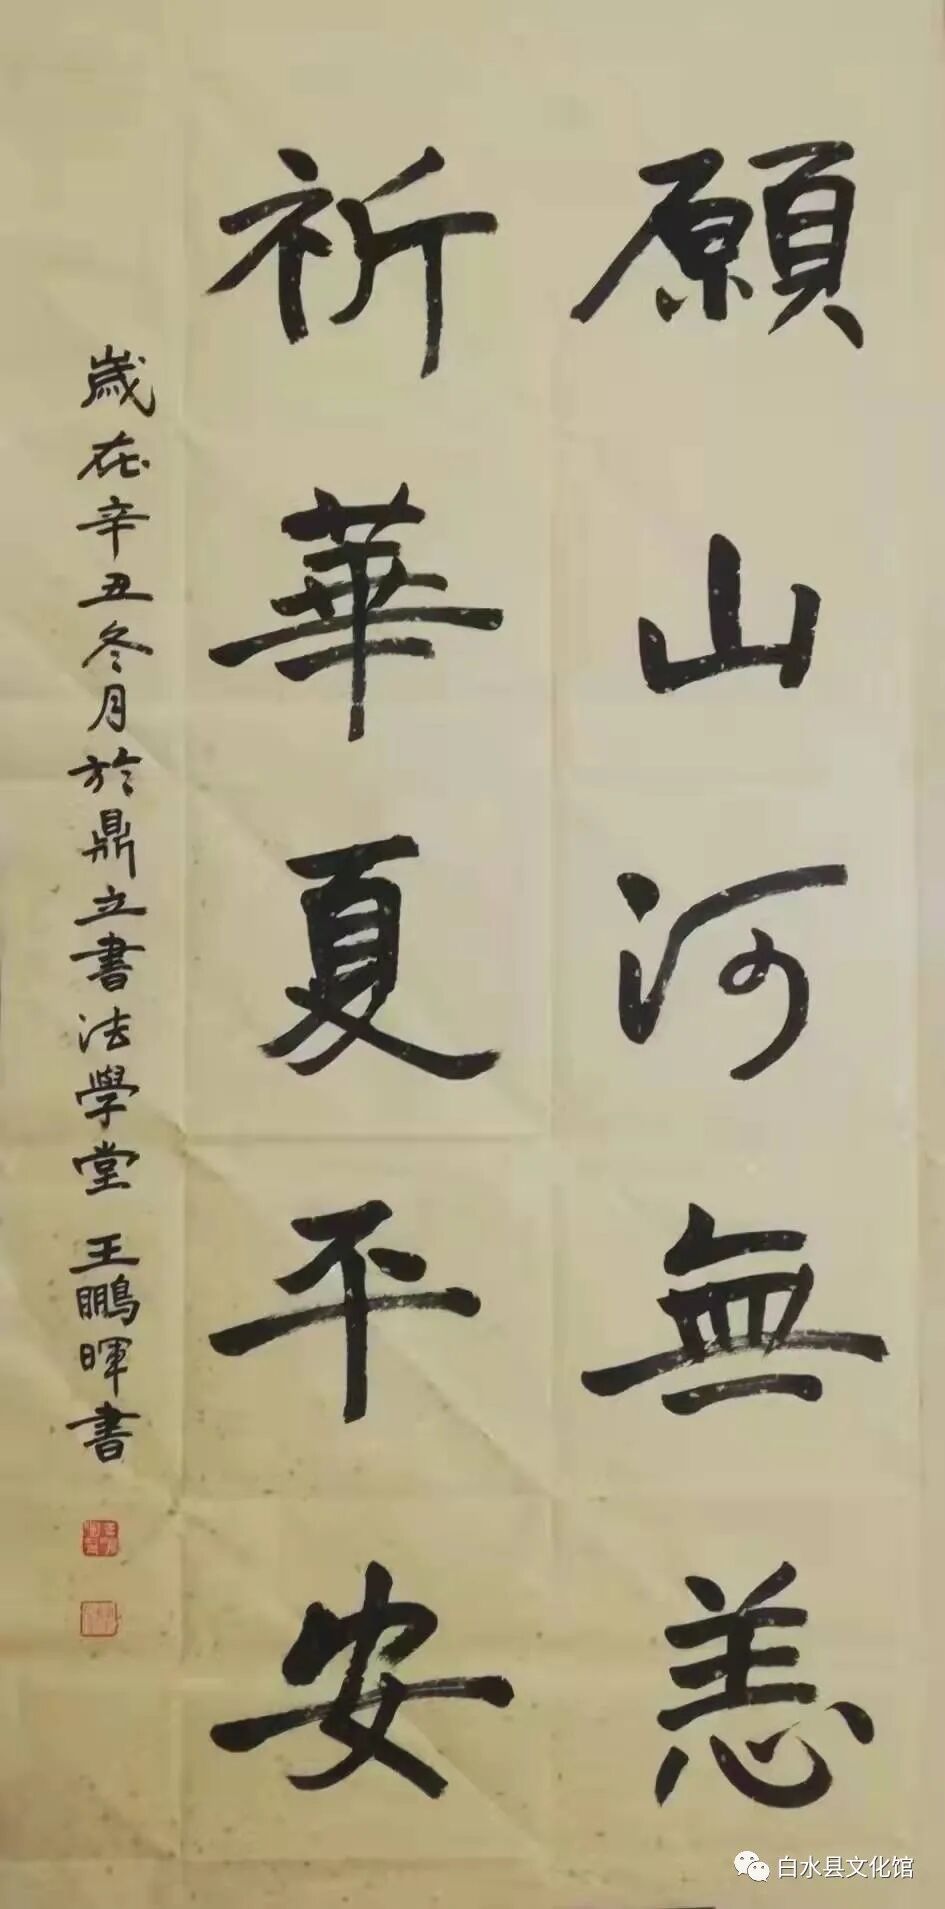 願山河無恙
祈華夏平安
歲在辛丑冬月於鼎立書法學堂 王鵬暉書
白水县文化馆